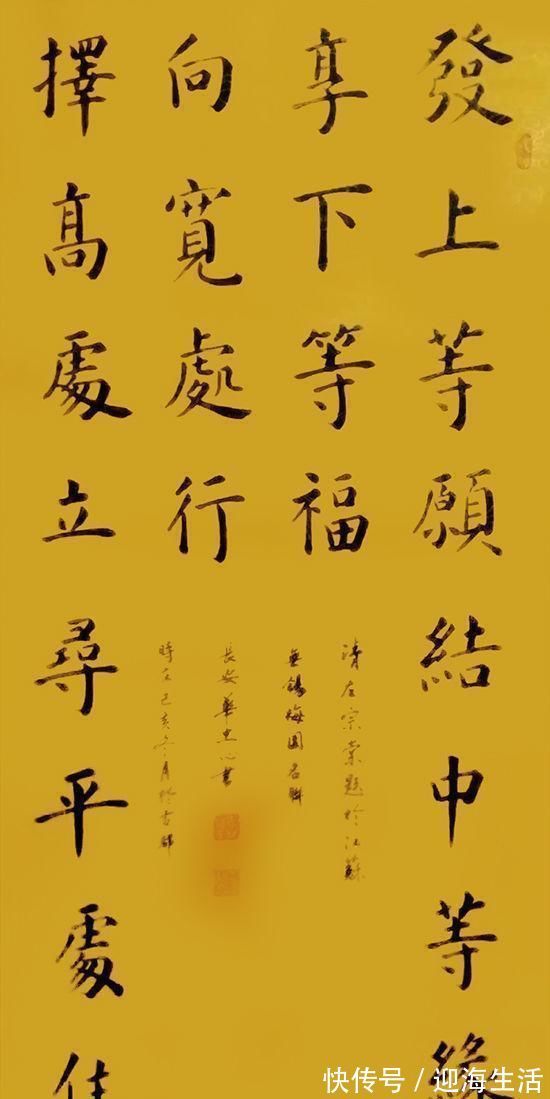 發上等願結中等緣
享下等福
清左宗棠題於江蘇
無錫梅園名聯
擇高處立尋平處住
向寬處行
時在己亥冬月於古都
長安華忠心書
快传号 / 迎海生活